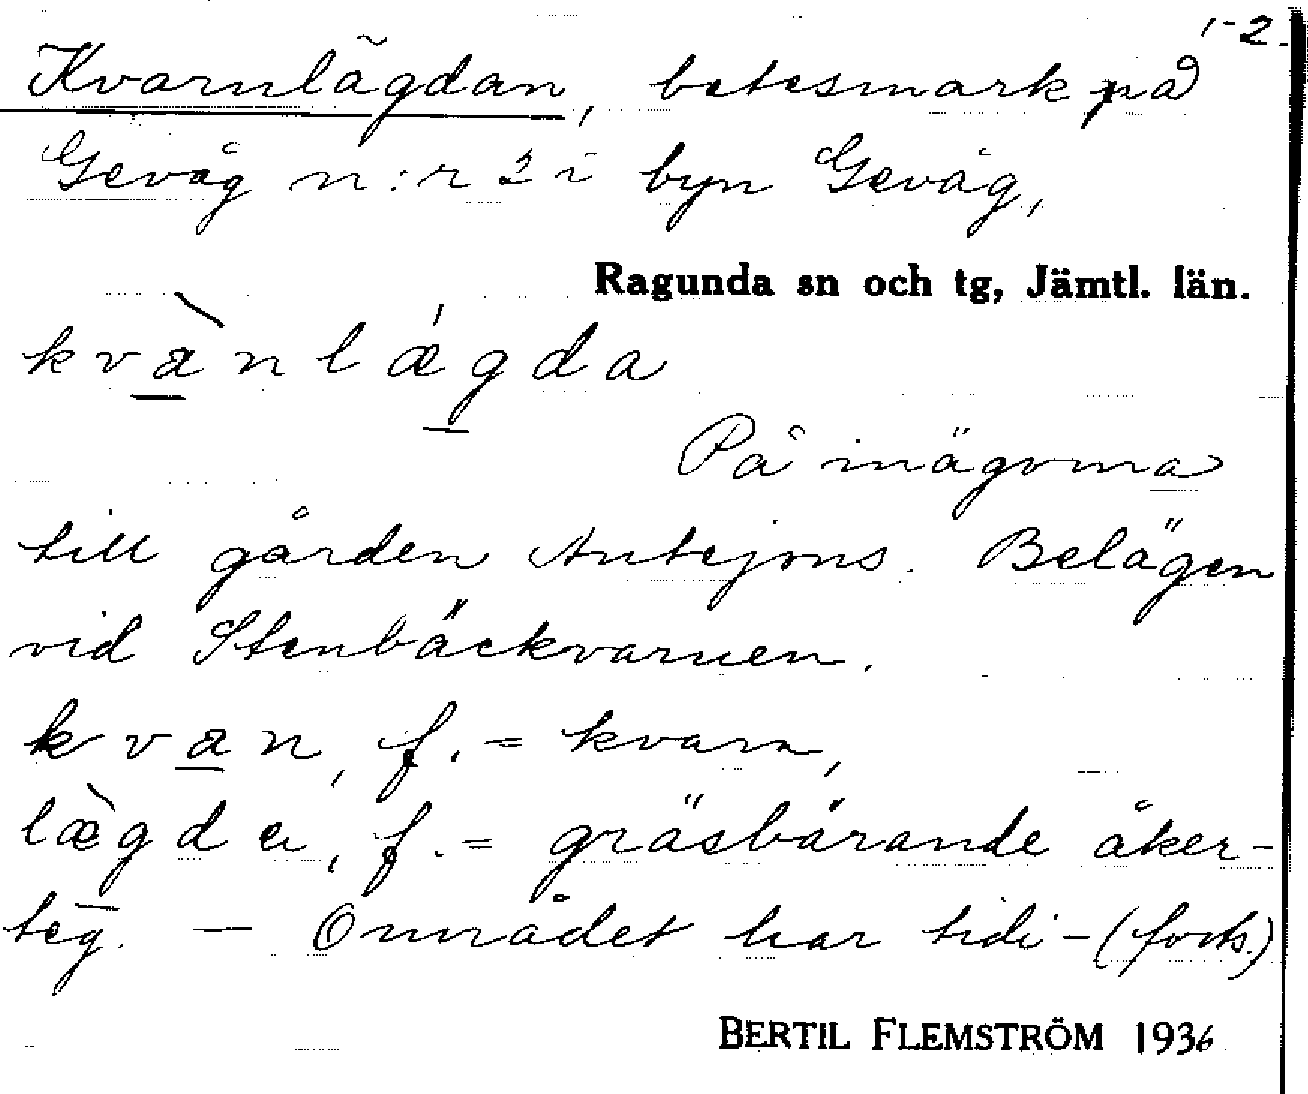 1-2.
Kvarnlägdan, betesmark på
Gevåg n:r 2 i byn Gevåg,
Ragunda sn och tg, Jämtl. län.
kvànlǽgda
På inägorna
till gården Antejons. Belägen
vid Stenbäckkvarnen.
kvan, f. = kvarn,
lægda, f. = gräsbärande åker-
teg. — Området har tidi- (forts.)
BERTIL FLEMSTRÖM 1936